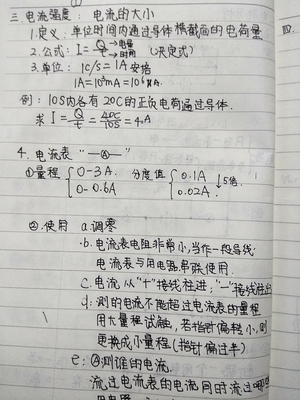 三 电流强度: 电流的大小
1.定义: 单位时间内通过导体横截面的电荷量
2.公式: I=Q/t →电量 →时间 (决定式)
3.单位: 1C/s=1A 安培
1A=10³mA=10⁶μA.
例: 10S内各有20C的正负电荷通过导体.
求 I=Q/t=40C/10S=4A
4. 电流表 "—Ⓐ—"
①量程 { 0-3A. 分度值 { 0.1A
0-0.6A 0.02A. ↓5倍.
②.使用 a.调零
b.电流表电阻非常小,当作一段导线.
电流表与用电器串联使用.
c.电流从"+"接线柱进,"-"接线柱出
d:测的电流不能超过电流表的量程
用大量程试触,若指针偏转小,则
更换成小量程(指针偏过半)
e:Ⓐ测谁的电流.
流过电流表的电流同时流过
四.